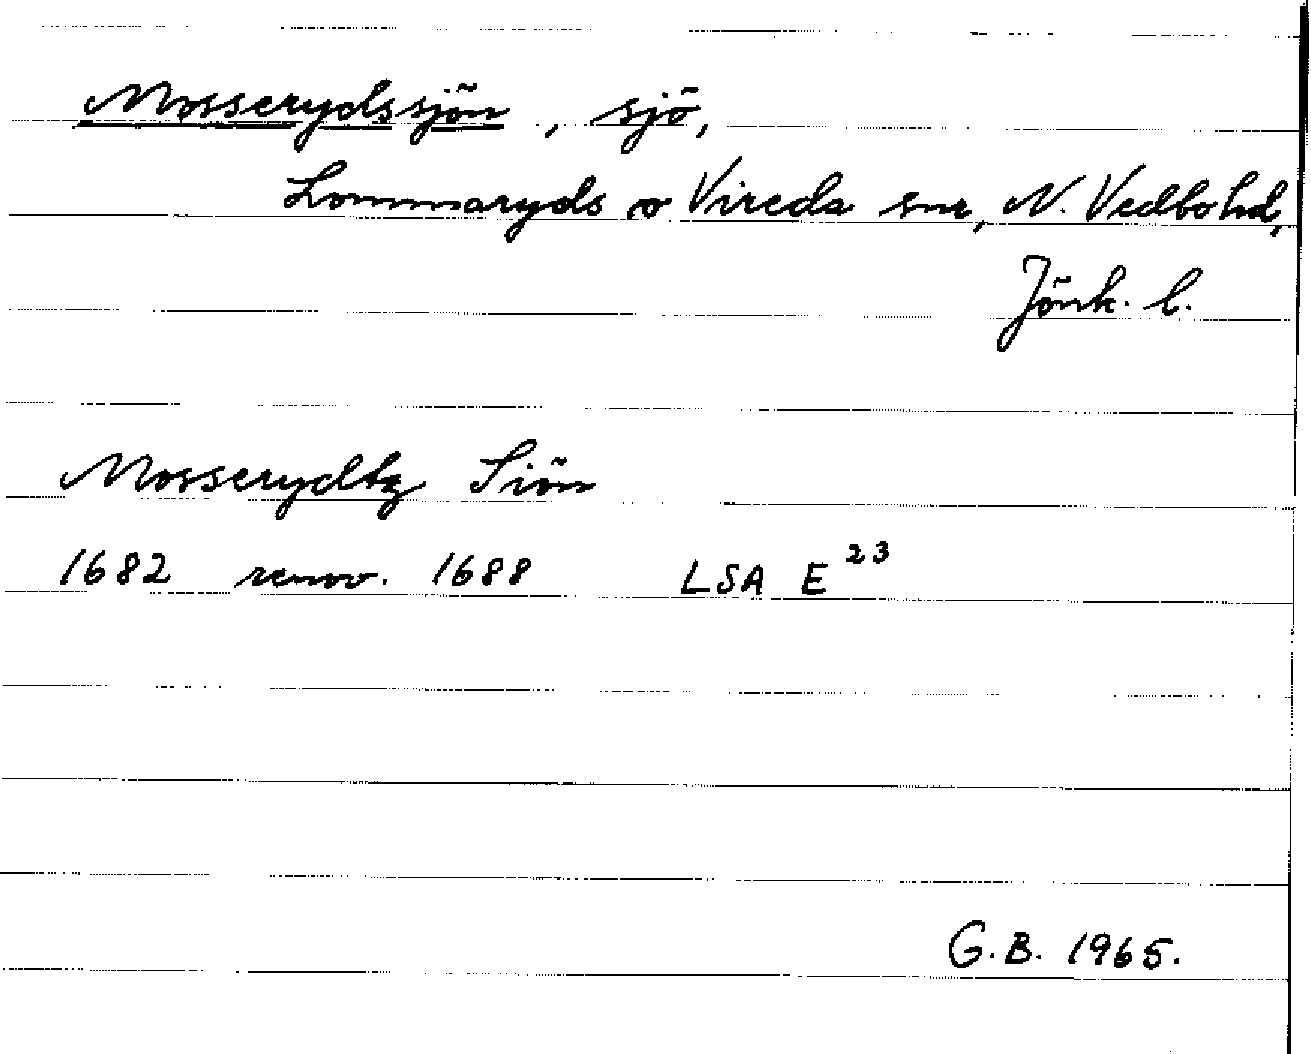 Mosserydssjön, sjö,
Lommaryds o Vireda snr, N. Vedbo hd,
Jönk. l.
Mosserydtz Siön
1682 renov. 1688 LSA E²³
G.B. 1965.